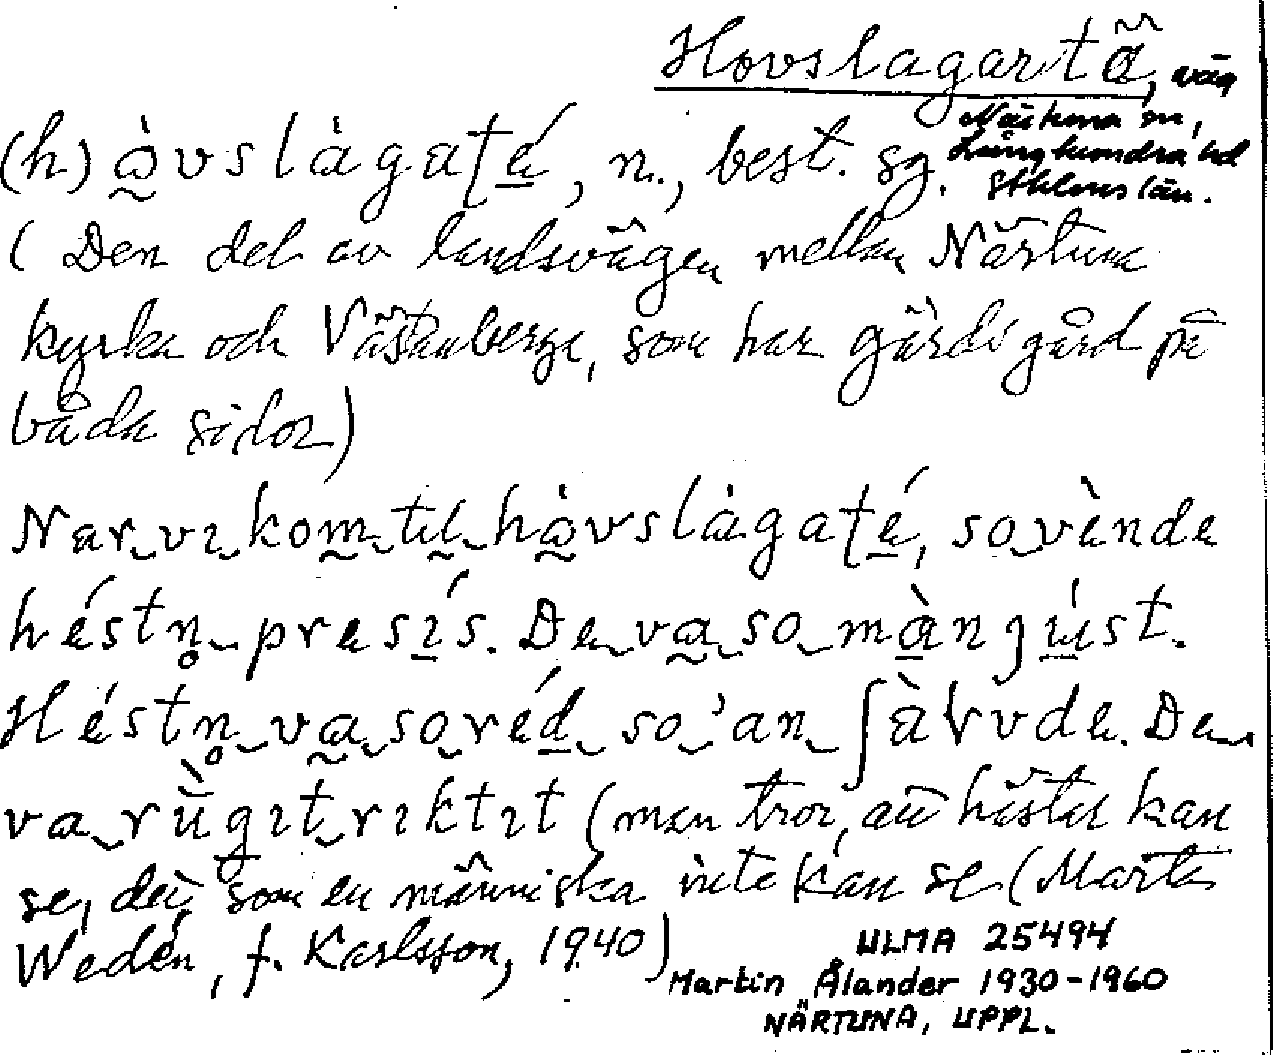 Hovslagartä, väg
Närtuna sn,
Långhundra hd
Sthlms län.
(h)ò̰vslàgaté, n., best. sg.
(Den del av landsvägen mellan Närtuna
kyrka och Västanberga, som har gärdsgård på
båda sidor)
Nar vı kom til hò̰vslàgaté, so vènde
héstn̥ presı́s. De va so màn júst.
Héstn̥ va so réd, so 'an ʃàlvde. De
va rùgıt rıktıt (man tror, att hästar kan
se, det som en människa inte kan se (Märta
Wedén, f. Karlsson, 1940)
ULMA 25494
Martin Ålander 1930-1960
NÄRTUNA, UPPL.